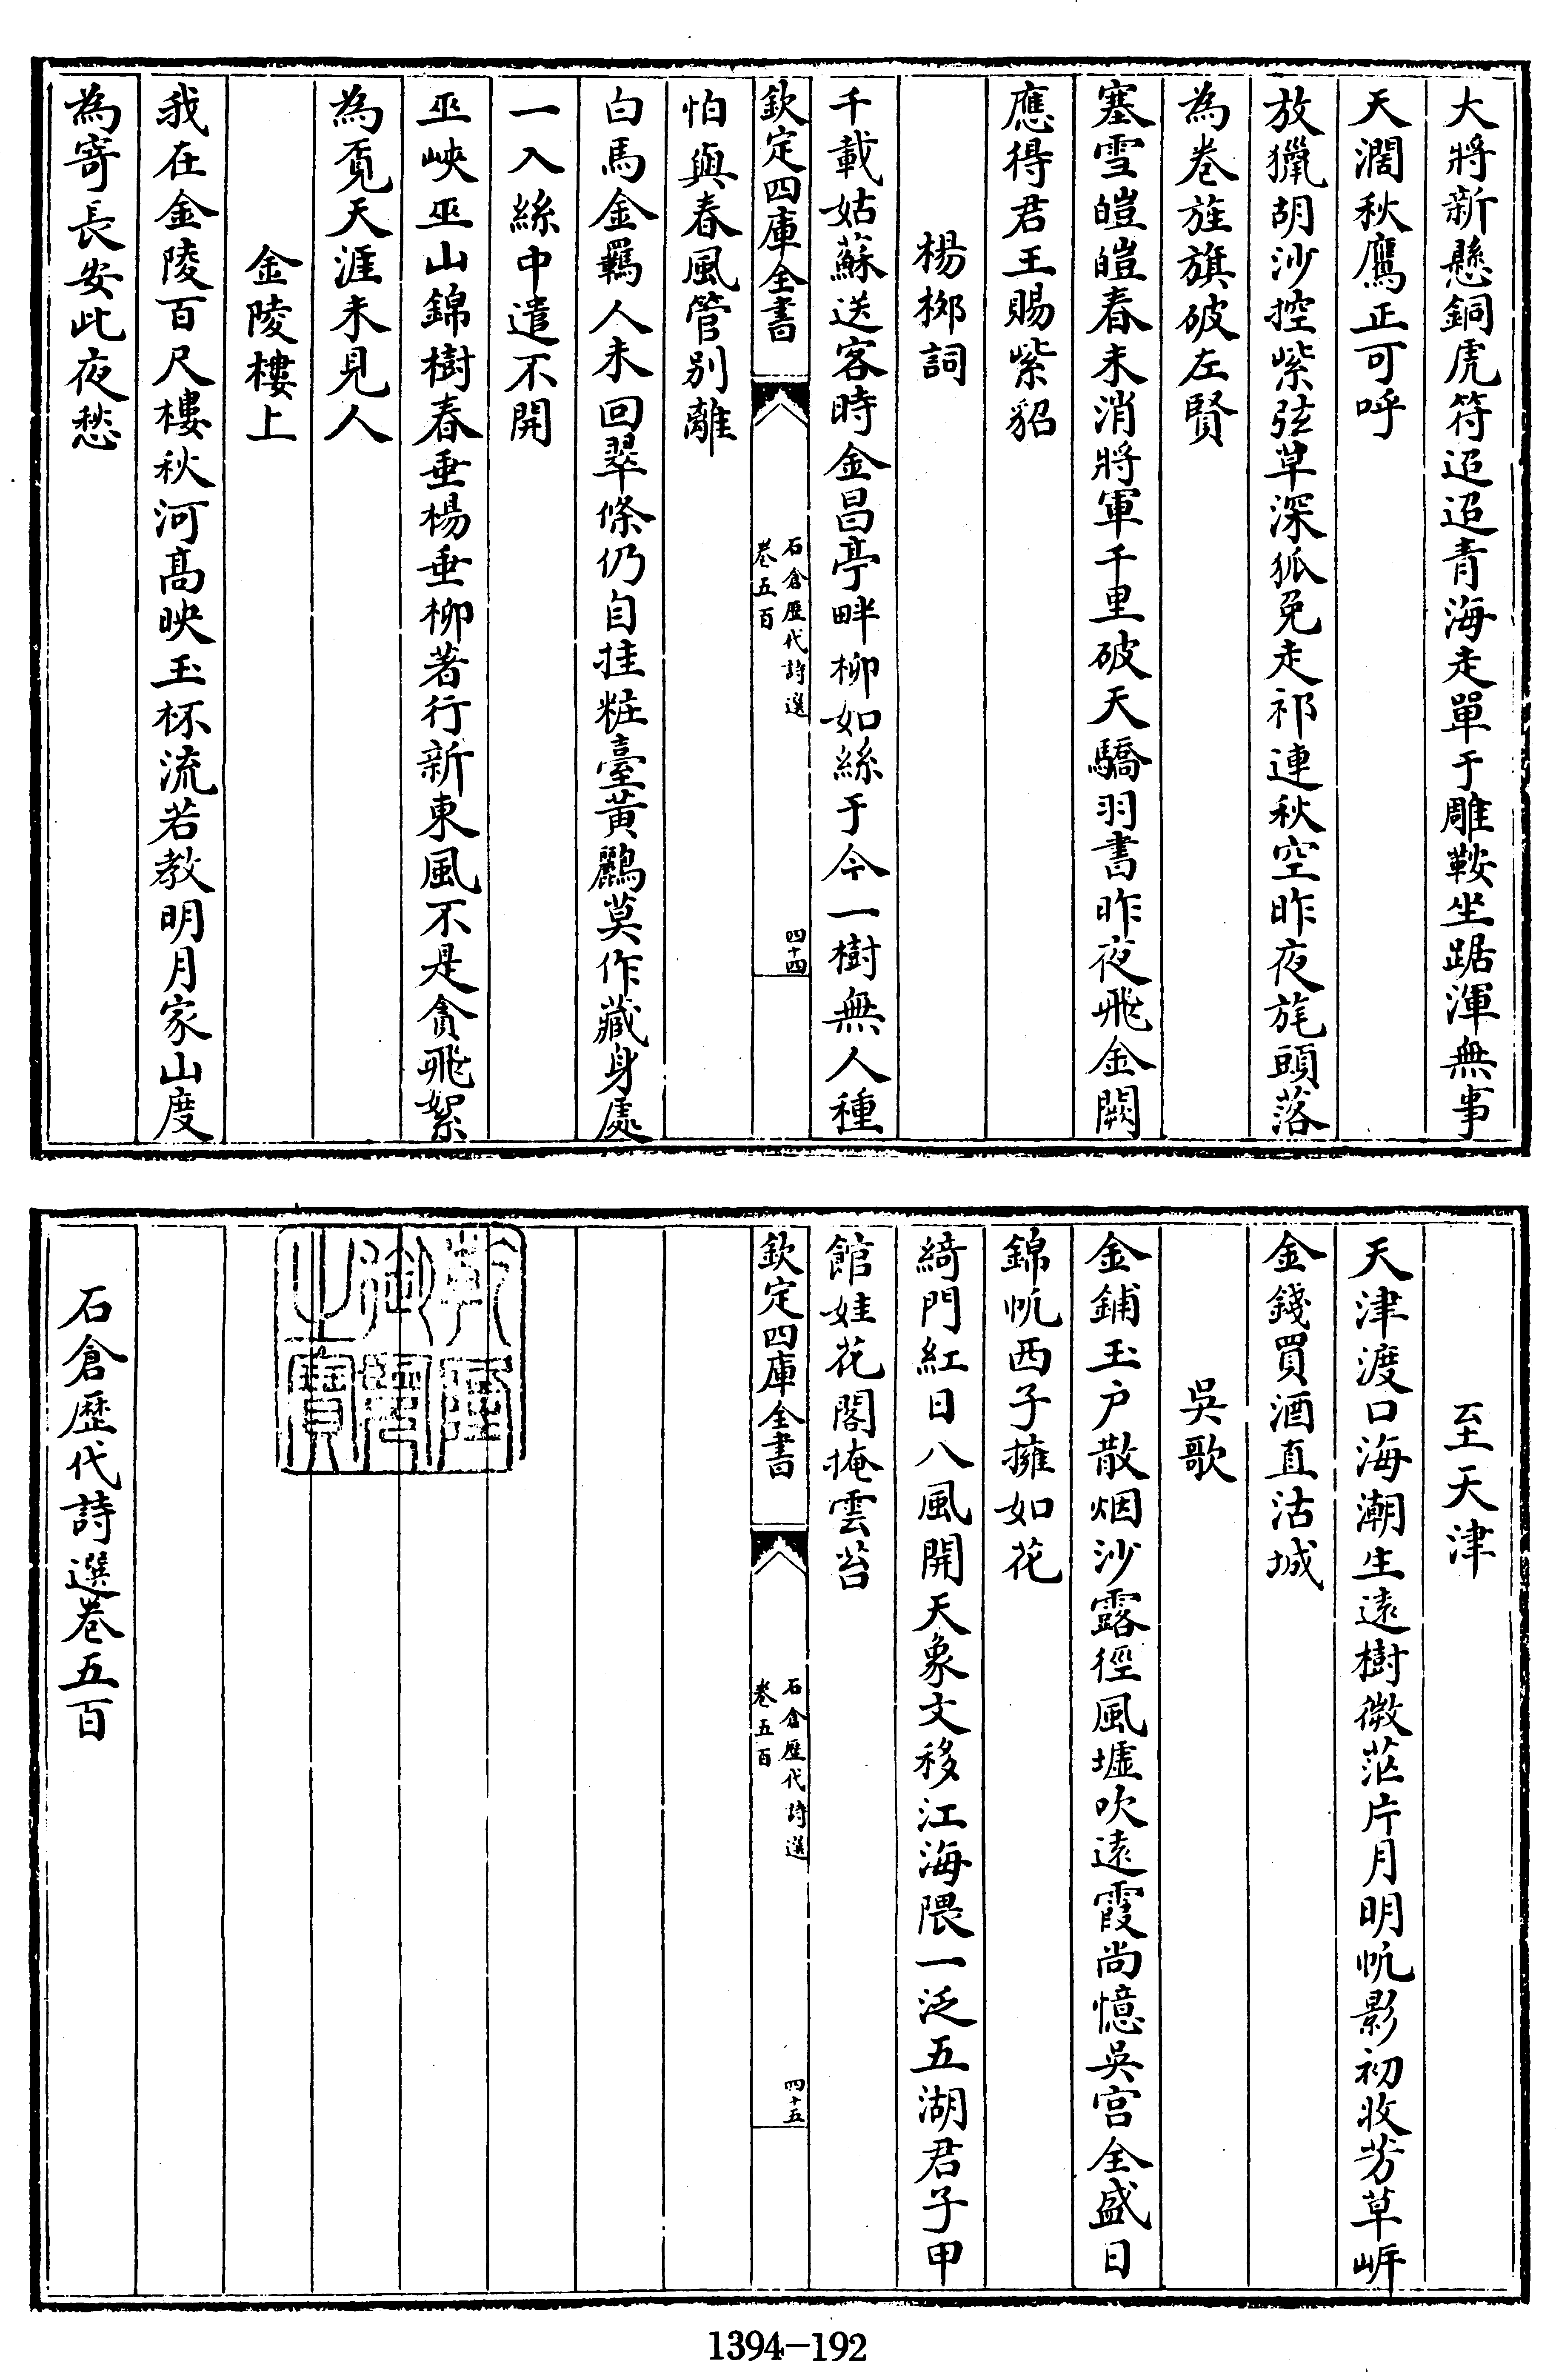 大將新懸銅虎符迢迢青海走單于雕鞍坐踞渾無事
天濶秋鷹正可呼
放獵胡沙控紫弦草深狐免走祁連秋空昨夜旄頭落
為巻旌旗破左賢
塞雪皚皚春未消將軍千里破天驕羽書昨夜飛金闕
應得君王賜紫貂
楊栁詞
千載姑蘇送客時金昌亭畔柳如絲于今一樹無人種
欽定四庫全書
石倉歴代詩選
卷五百
四十四
怕與春風管别離
白馬金羈人未回翠條仍自挂粧臺黃鸝莫作藏身處
一入絲中遣不開
巫峽巫山錦樹春垂楊垂柳著行新東風不是貪飛絮
為覔天涯未見人
金陵樓上
我在金陵百尺樓秋河髙映玉杯流若教明月家山度
為寄長安此夜愁
至天津
天津渡口海潮生遠樹微茫片月明帆影初收芳草岍
金錢買酒直沽城
吳歌
金鋪玉户散烟沙露徑風墟吹遠霞尚憶吳宫全盛日
錦帆西子擁如花
綺門紅日八風開天象文移江海隈一泛五湖君子甲
館娃花閣掩雲苔
欽定四庫全書
石倉歴代詩選
卷五百
四十五
乾隆
御覽
之寶
石倉歴代詩選卷五百
1394-192